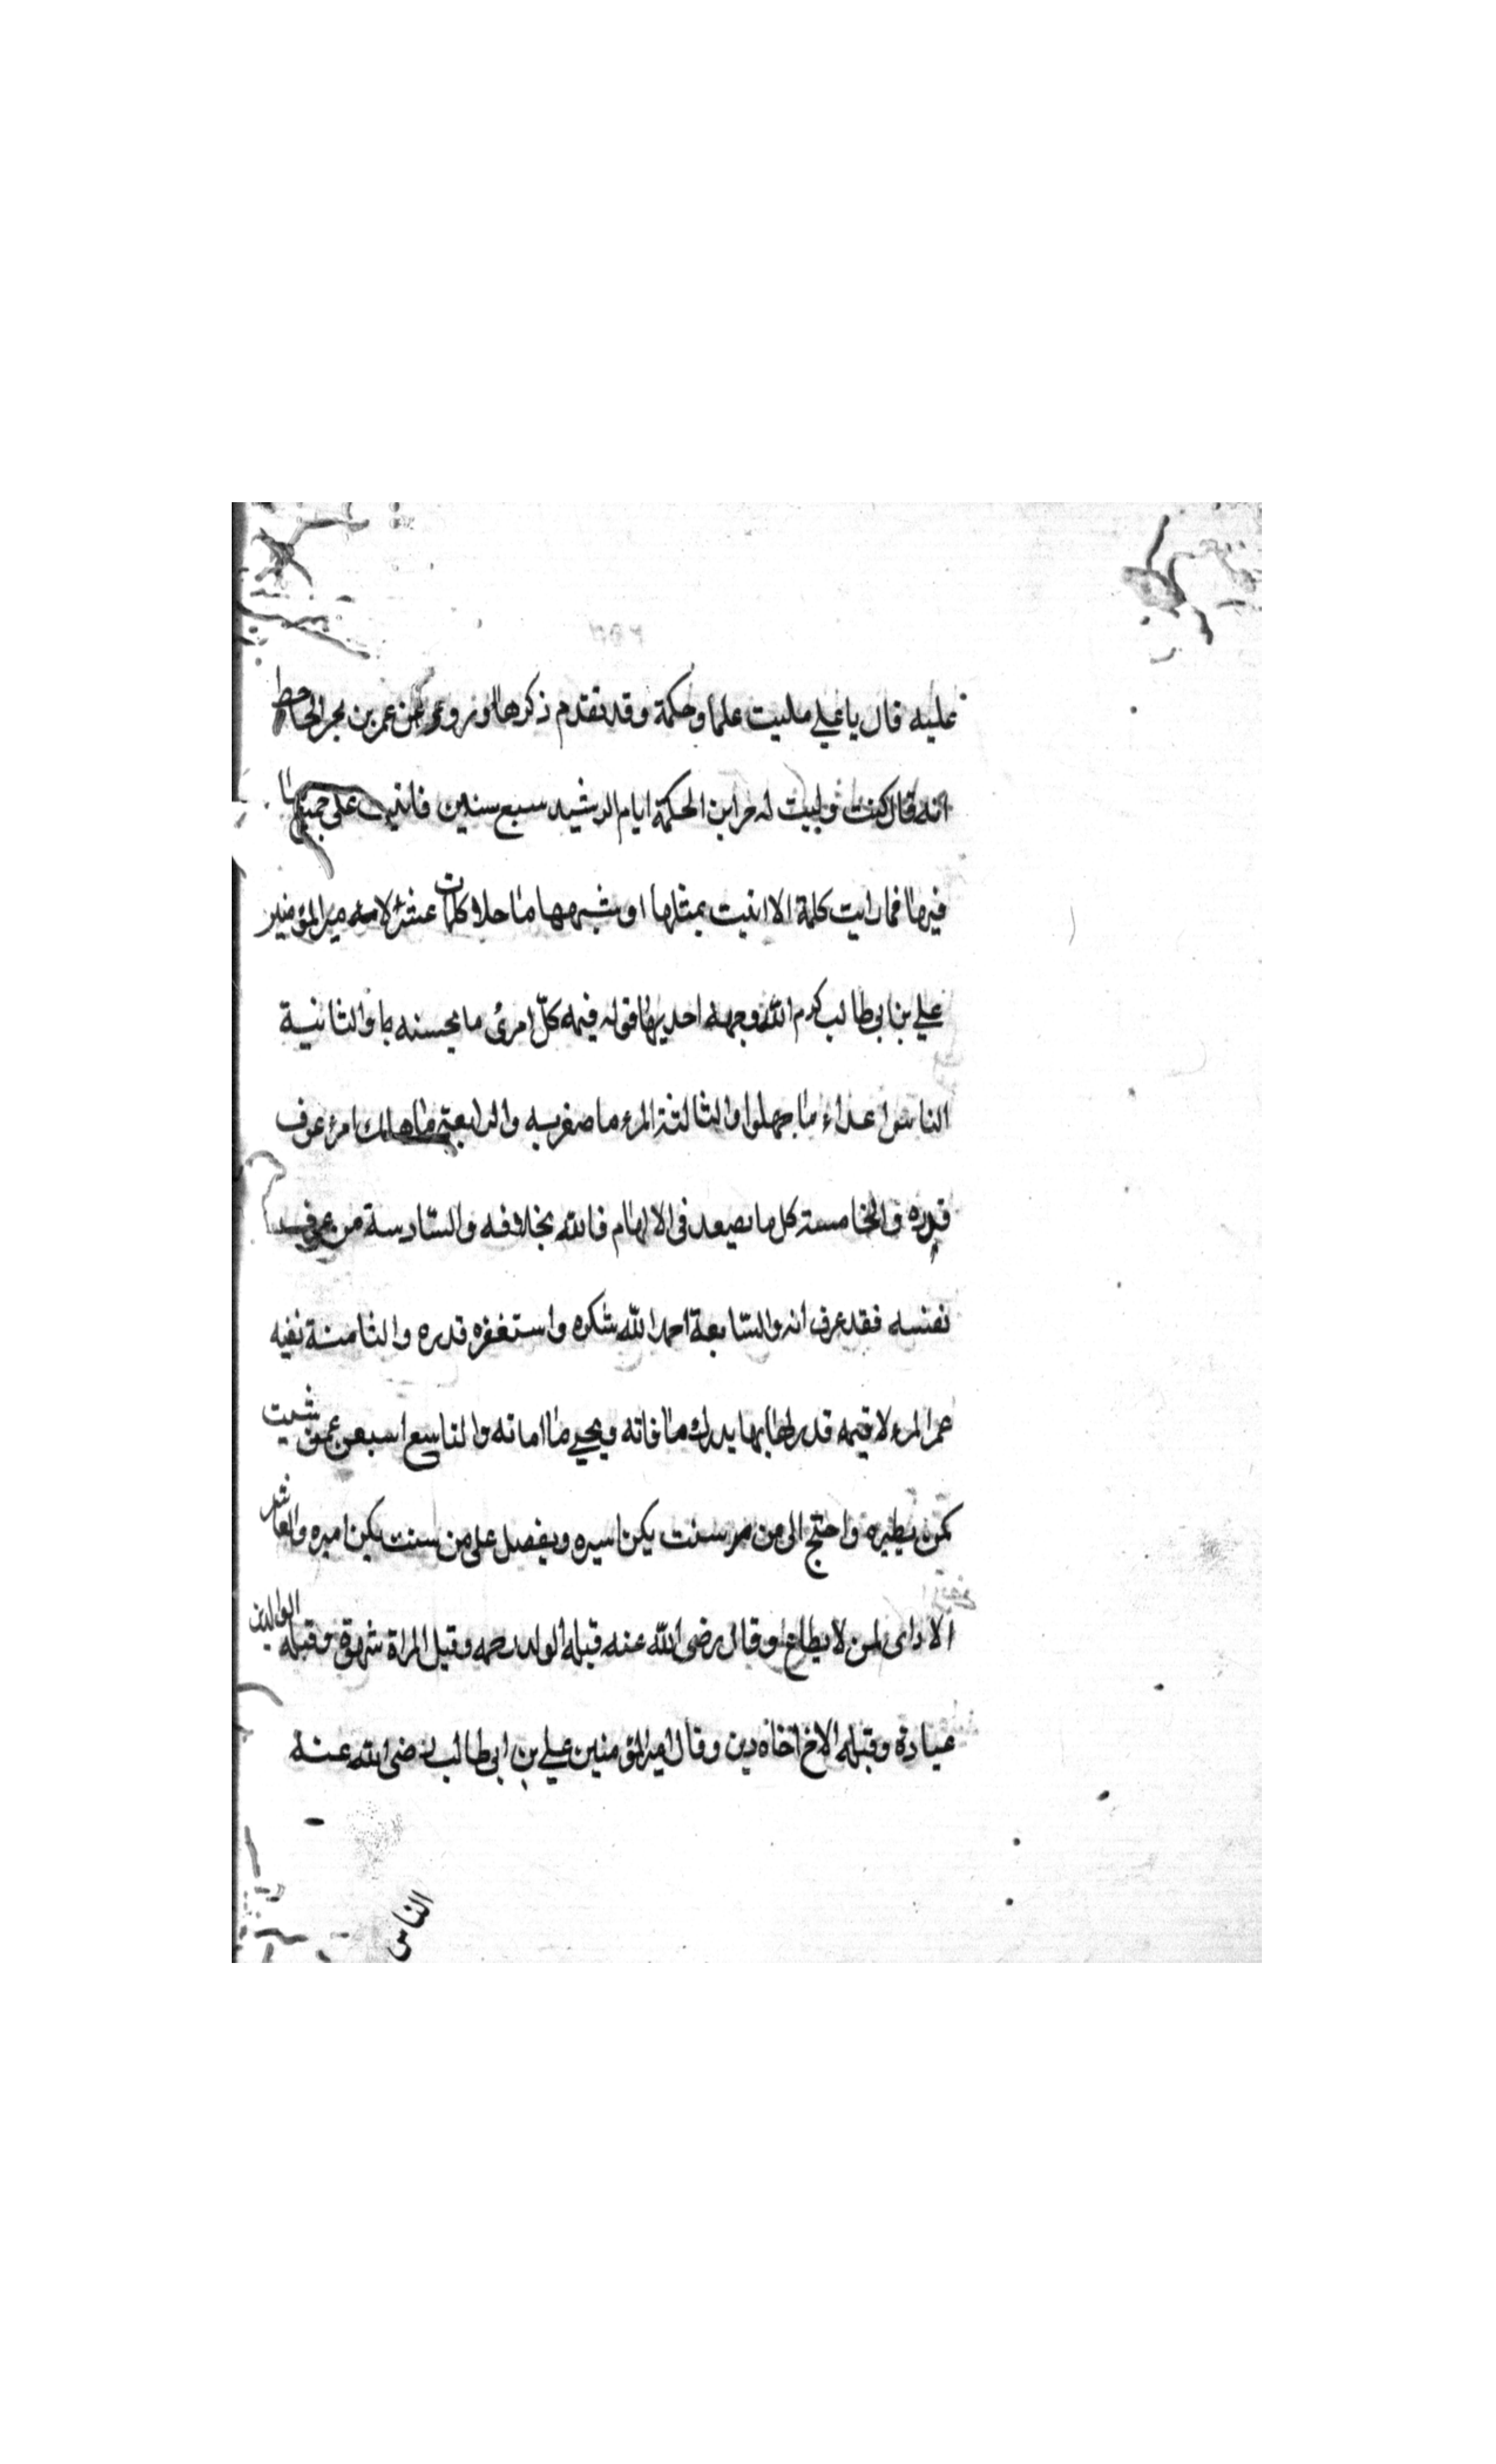 عليه قال يا علي مليت علما وحكمة وقد تقدم ذكرها وروي عن عمر بن بحر الجاحظ
انه قال كنت وليت له خراين الحكمة ايام الرشيد سبع سنين فاتيت على جميع ما
فيها فما رايت كلمة الا اتيت بمثلها او شبهها ما خلا كلمات عشرة لامير المؤمنين
علي بن ابي طالب كرم الله وجهه احديها قوله قيمة كل امرئ ما يحسنه والثانية
الناس اعداء ما جهلوا والثالثة المرء ما صغريه والرابعة ما هلك امرء عرف
قدره والخامسة كل ما يصعد في الالهام فالله بخلافه والسادسة من عرف
نفسه فقد عرف انه والسابعة احمد الله شكره واستغفره قدره والثامنة بقيه
عمر المرء لا قيمه قدر لها بها يدرك ما فاته ويحيي ما اماته والتاسع شيت
كمن يطيره واحتج الى من سنت يكن اسيره وبفضل على من سنت يكن اميره والعاشر
الا راى لمن لا يطاع وقال رضى الله عنه قبلة الولد رحمه وقبل المراة شهوة وقبلة الوالدين
عبادة وقبله الاخ اخاه دين وقال امير المؤمنين علي بن ابي طالب رضى الله عنه
الناس